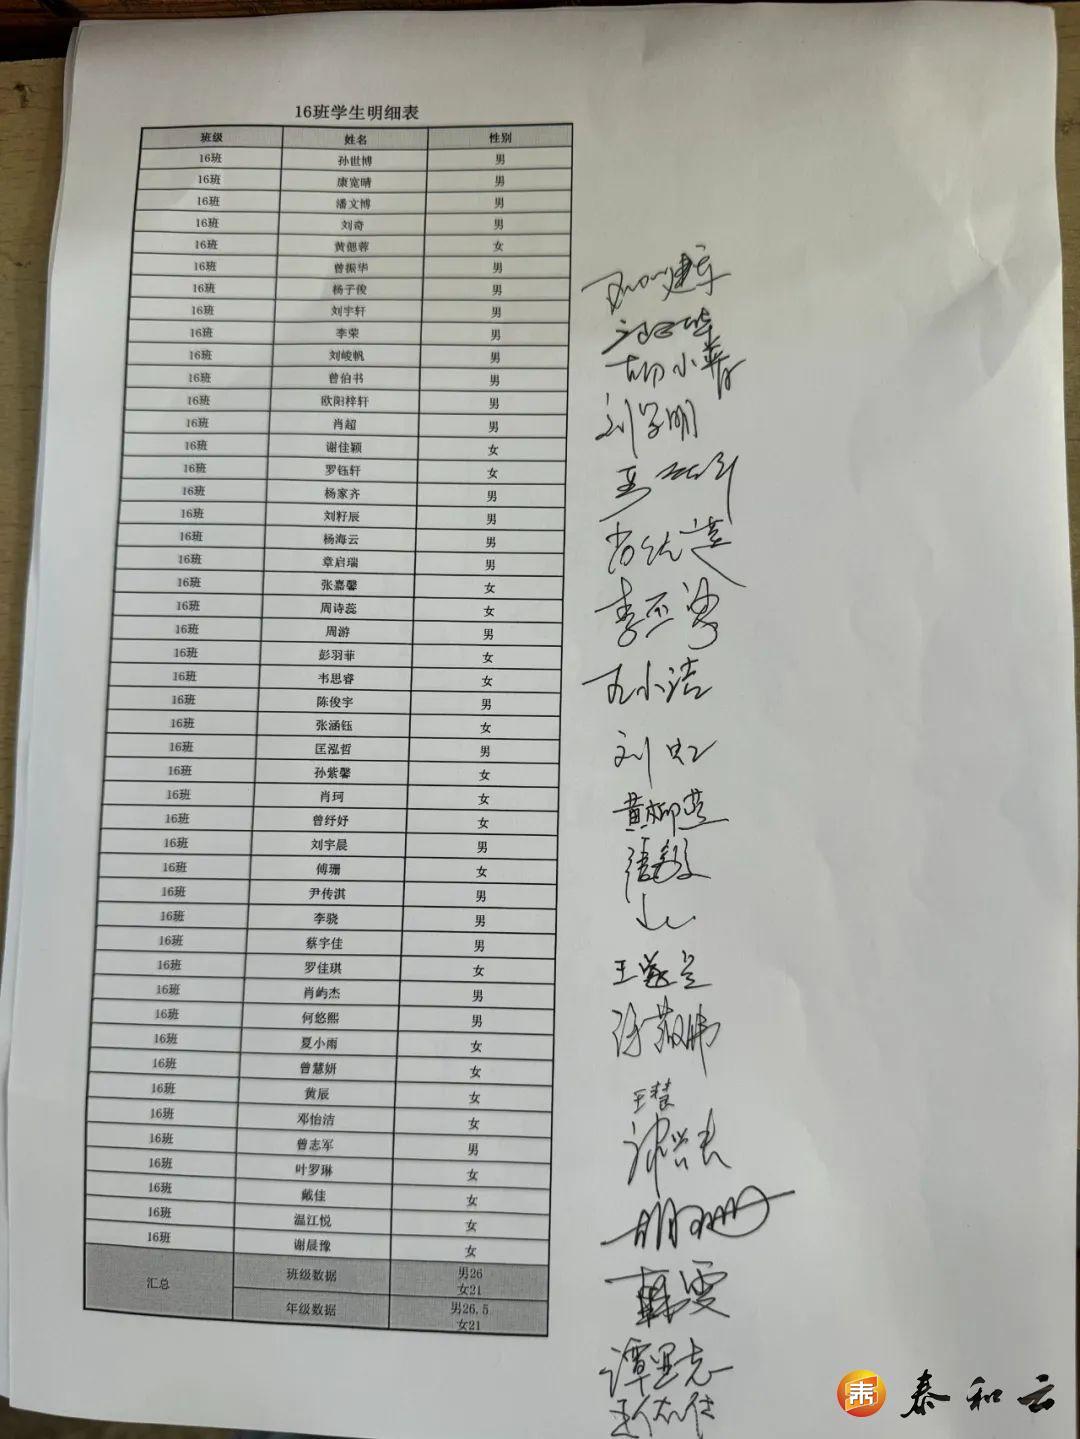 16班学生明细表
班级 姓名 性别
16班 孙世博 男
16班 康宽晴 男
16班 潘文博 男
16班 刘奇 男
16班 黄偲蓉 女
16班 曾振华 男
16班 杨子俊 男
16班 刘宇轩 男
16班 李荣 男
16班 刘峻帆 男
16班 曾伯书 男
16班 欧阳梓轩 男
16班 肖超 男
16班 谢佳颖 女
16班 罗钰轩 女
16班 杨家齐 男
16班 刘籽辰 男
16班 杨海云 男
16班 章启瑞 男
16班 张嘉馨 女
16班 周诗蕊 女
16班 周游 男
16班 彭羽菲 女
16班 韦思睿 女
16班 陈俊宇 男
16班 张涵钰 女
16班 匡泓哲 男
16班 孙紫馨 女
16班 肖珂 女
16班 曾纾妤 女
16班 刘宇晨 男
16班 傅珊 女
16班 尹传淇 男
16班 李骁 男
16班 蔡宇佳 男
16班 罗佳琪 女
16班 肖屿杰 男
16班 何悠熙 男
16班 夏小雨 女
16班 曾慧妍 女
16班 黄辰 女
16班 邓怡洁 女
16班 曾志军 男
16班 叶罗琳 女
16班 戴佳 女
16班 温江悦 女
16班 谢晨豫 女
汇总 班级数据 男26 女21
年级数据 男26.5 女21
胡小菁
刘学明
刘虹
黄柳燕
王慧
韩雯
泰和云